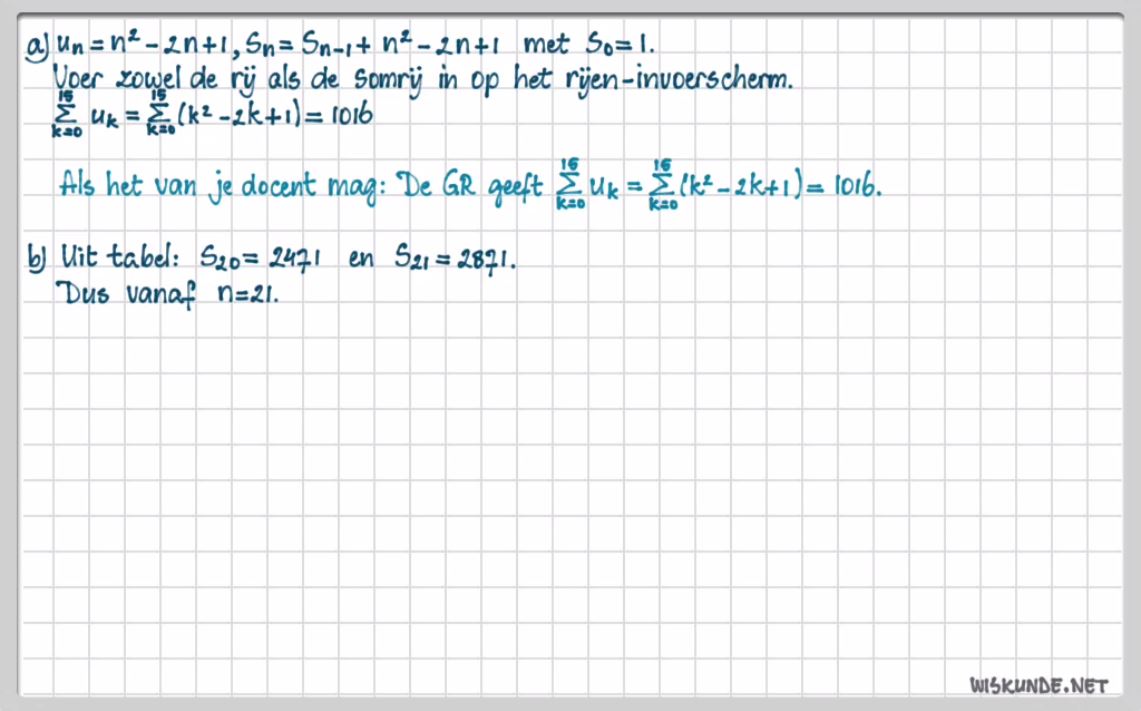 a) uₙ = n² - 2n + 1, Sₙ = Sₙ₋₁ + n² - 2n + 1 met S₀ = 1.
Voer zowel de rij als de somrij in op het rijen-invoerscherm.
15 15
Σ uₖ = Σ (k² - 2k + 1) = 1016
k=0 k=0
15 15
Als het van je docent mag: De GR geeft Σ uₖ = Σ (k² - 2k + 1) = 1016.
k=0 k=0
b) Uit tabel: S₂₀ = 2471 en S₂₁ = 2871.
Dus vanaf n=21.
WISKUNDE.NET